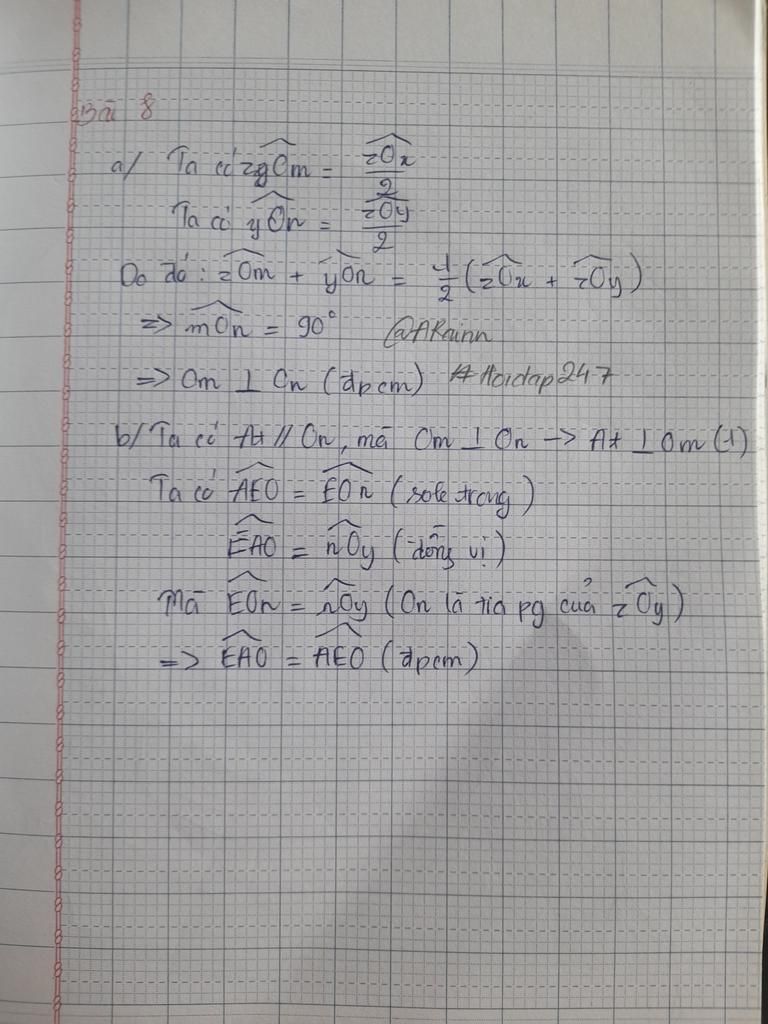 Bài 8
a/ Ta có zOm = zOx/2
Ta có yOn = zOy/2
Do đó: zOm + yOn = 1/2 (zOx + zOy)
=> mOn = 90°  @ARainn
=> Om ⊥ On (đpcm)  #Hoidap247
b/ Ta có At // On, mà Om ⊥ On -> At ⊥ Om (1)
Ta có AEO = EOn (sole trong)
EAO = nOy (đồng vị)
Mà EOn = nOy (On là tia pg của zOy)
=> EAO = AEO (đpcm)